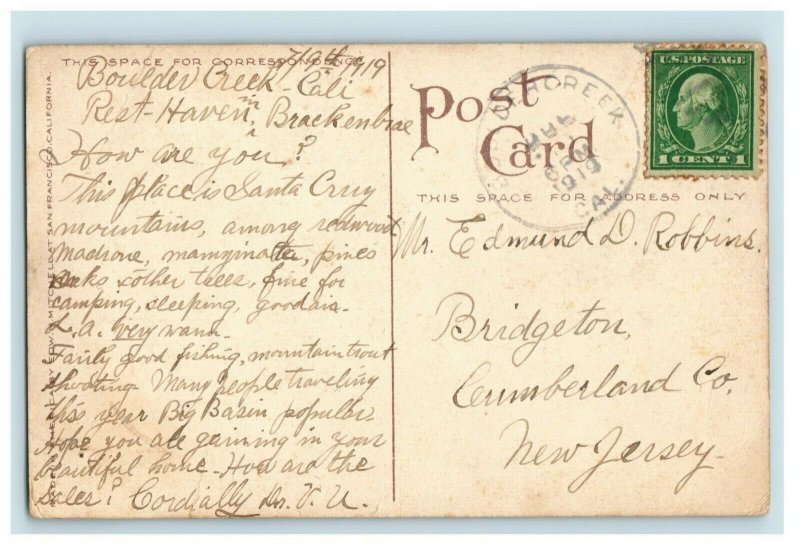 THIS SPACE FOR CORRESPONDENCE
7/9th/1919
Boulder Creek - Cali
Rest-Haven, Brackenbrae
How are you?
This place is Santa Cruz
mountains, among redwood
Madrone, manzinatta, pines
oaks & other trees, fine for
camping, sleeping, good air.
L.A. very warm.
Fairly good fishing, mountain trout
shooting. Many people traveling
this year Big Basin popular.
Hope you are gaining in your
beautiful home. How are the
sales? Cordially Dr. V. U.
MITCHELL AT SAN FRANCISCO, CALIFORNIA.
Post
Card
THIS SPACE FOR ADDRESS ONLY
CREEK
CAL.
U.S. POSTAGE
1 CENT 1
Mr. Edmund D. Robbins.
Bridgeton,
Cumberland Co.
New Jersey-